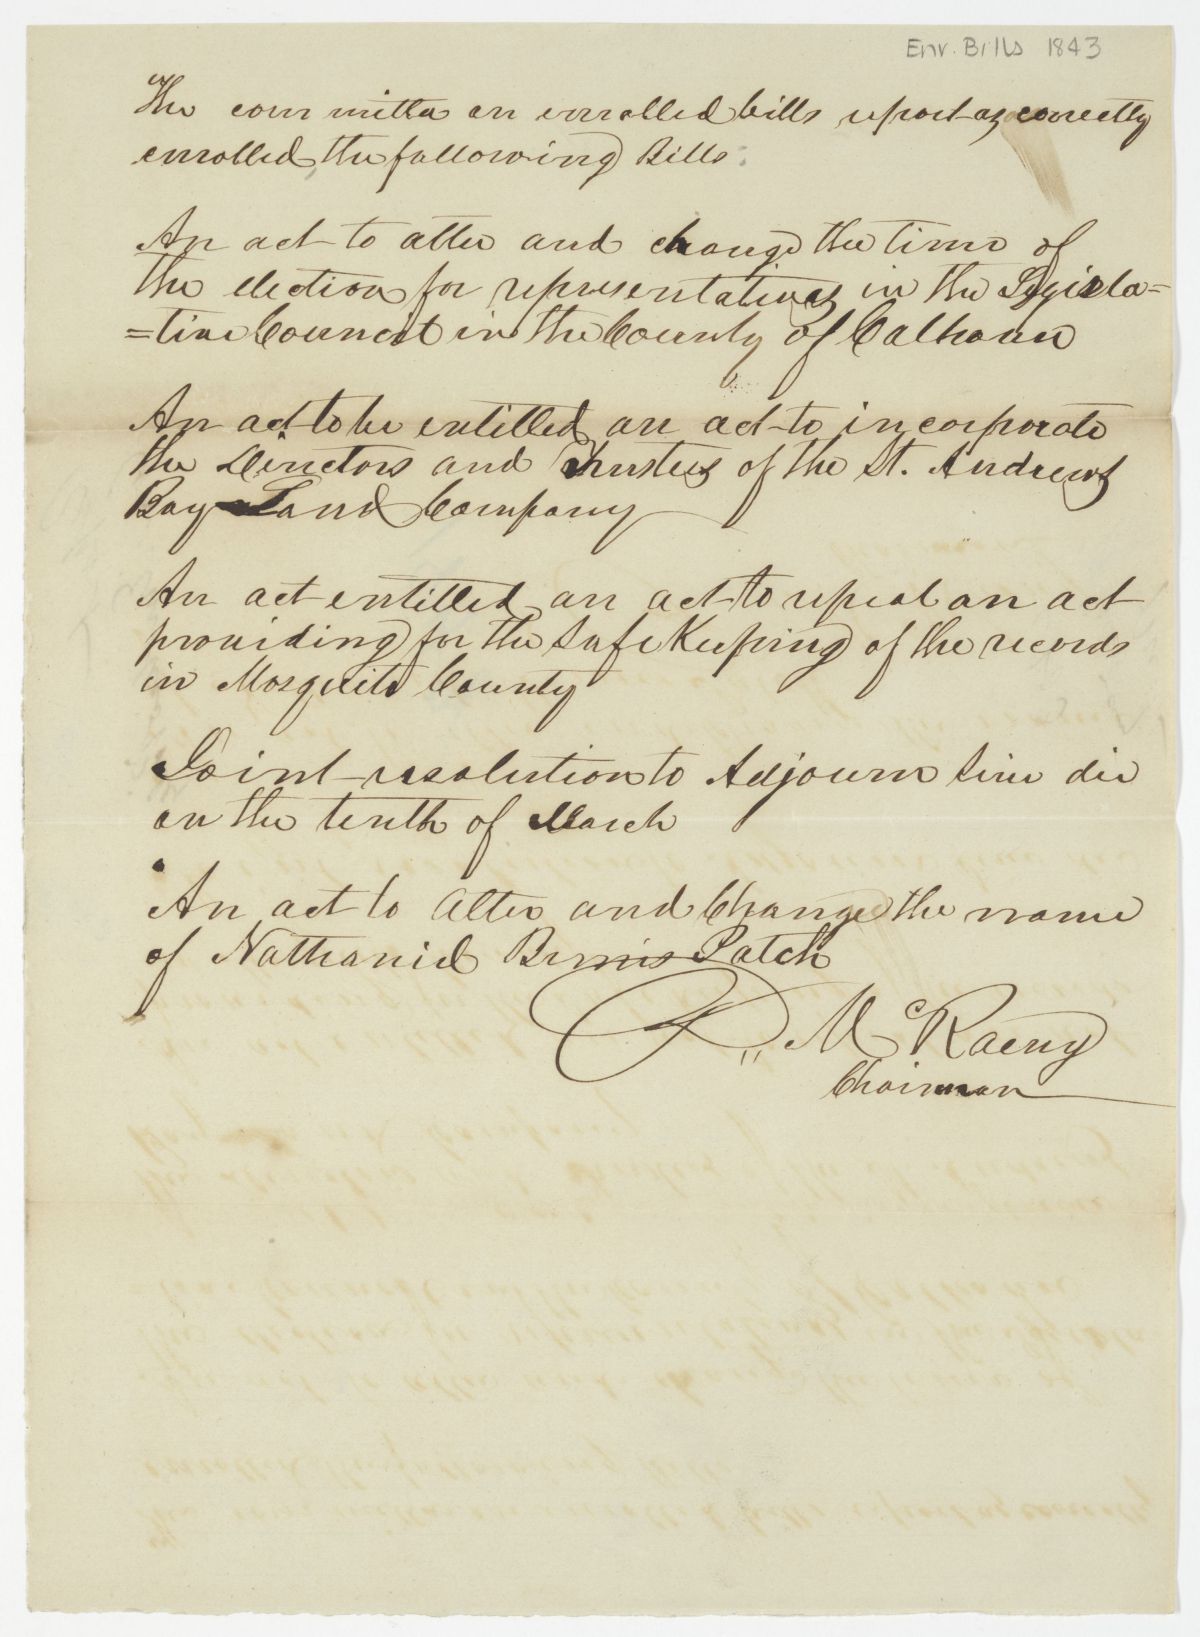 Enr. Bills 1843
The committee on enrolled bills report as correctly
enrolled the following Bills:
An act to alter and change the time of
the election for representatives in the Legisla=
=tive Council in the County of Calhoun
An act to be entitled an act to incorporate
the Directors and Trustees of the St. Andrews
Bay Land Company
An act entitled an act to repeal an act
providing for the Safe Keeping of the records
in Mosquito County
Joint resolution to Adjourn Sine die
on the tenth of March
An act to alter and Change the name
of Nathaniel Patch
McRaeny
Chairman